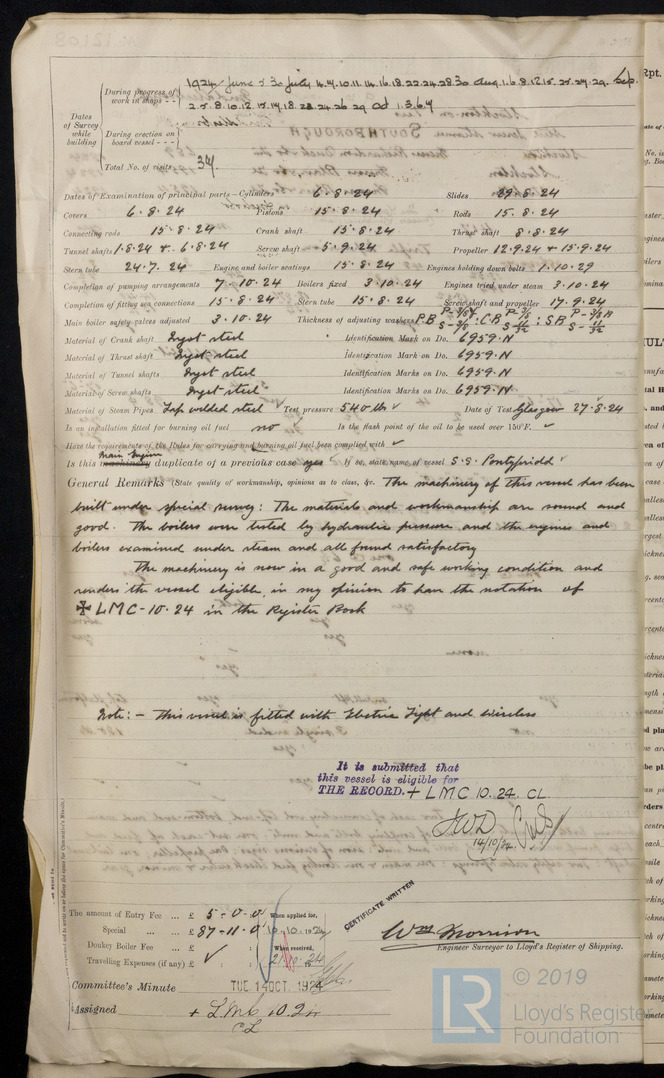 During progress of work in shops - - 1924 June 5. 30 July 4. 7. 10. 11. 14. 16. 18. 22. 24. 28. 30 Aug. 1. 6. 8. 12. 15. 25. 27. 29. Sep.
2. 5. 8. 10. 12. 15. 17. 18. 23. 24. 26. 29 Oct 1. 3. 6. 7
Dates of Survey while building
During erection on board vessel - - -
Total No. of visits 34
Dates of Examination of principal parts—Cylinders 6.8.24 Slides 29.8.24
Covers 6.8.24 Pistons 15.8.24 Rods 15.8.24
Connecting rods 15.8.24 Crank shaft 15.8.24 Thrust shaft 8.8.24
Tunnel shafts 1.8.24 & 6.8.24 Screw shaft 5.9.24 Propeller 12.9.24 & 15.9.24
Stern tube 24.7.24 Engine and boiler seatings 15.8.24 Engines holding down bolts 1.10.24
Completion of pumping arrangements 7.10.24 Boilers fixed 3.10.24 Engines tried under steam 3.10.24
Completion of fitting sea connections 15.8.24 Stern tube 15.8.24 Screw shaft and propeller 17.9.24
Main boiler safety valves adjusted 3.10.24 Thickness of adjusting washers
Material of Crank shaft Ingot steel Identification Mark on Do. 6959.N
Material of Thrust shaft Ingot steel Identification Mark on Do. 6959.N
Material of Tunnel shafts Ingot steel Identification Marks on Do. 6959.N
Material of Screw shafts Ingot steel Identification Marks on Do. 6959.N
Material of Steam Pipes Lap welded steel ✓ Test pressure 540 lbs ✓ Date of Test Glasgow 27.8.24
Is an installation fitted for burning oil fuel no ✓ Is the flash point of the oil to be used over 150°F. ✓
Have the requirements of the Rules for carrying and burning oil fuel been complied with ✓
Is this machinery Main Engine duplicate of a previous case yes ✓ If so, state name of vessel S.S. Pontypridd ✓
General Remarks (State quality of workmanship, opinions as to class, &c. The machinery of this vessel has been
built under special survey: The materials and workmanship are sound and
good. The boilers were tested by hydraulic pressure and the engines and
boilers examined under steam and all found satisfactory
The machinery is now in a good and safe working condition and
renders the vessel eligible, in my opinion to have the notation of
✠ LMC-10.24 in the Register Book
Note: - This vessel is fitted with Electric Light and Wireless
It is submitted that
this vessel is eligible for
THE RECORD. + LMC 10.24 CL.
14/10/24
CERTIFICATE WRITTEN
The amount of Entry Fee ... £ 5-0-0 When applied for,
Special ... £ 87-11-0 10.10.1924
Donkey Boiler Fee ... £ When received,
Travelling Expenses (if any) £ 21.10.24
Wm Morrison
Engineer Surveyor to Lloyd's Register of Shipping.
Committee's Minute TUE 14 OCT. 1924
Assigned + LMC 10.24
CL
LR © 2019
Lloyd's Register
Foundation